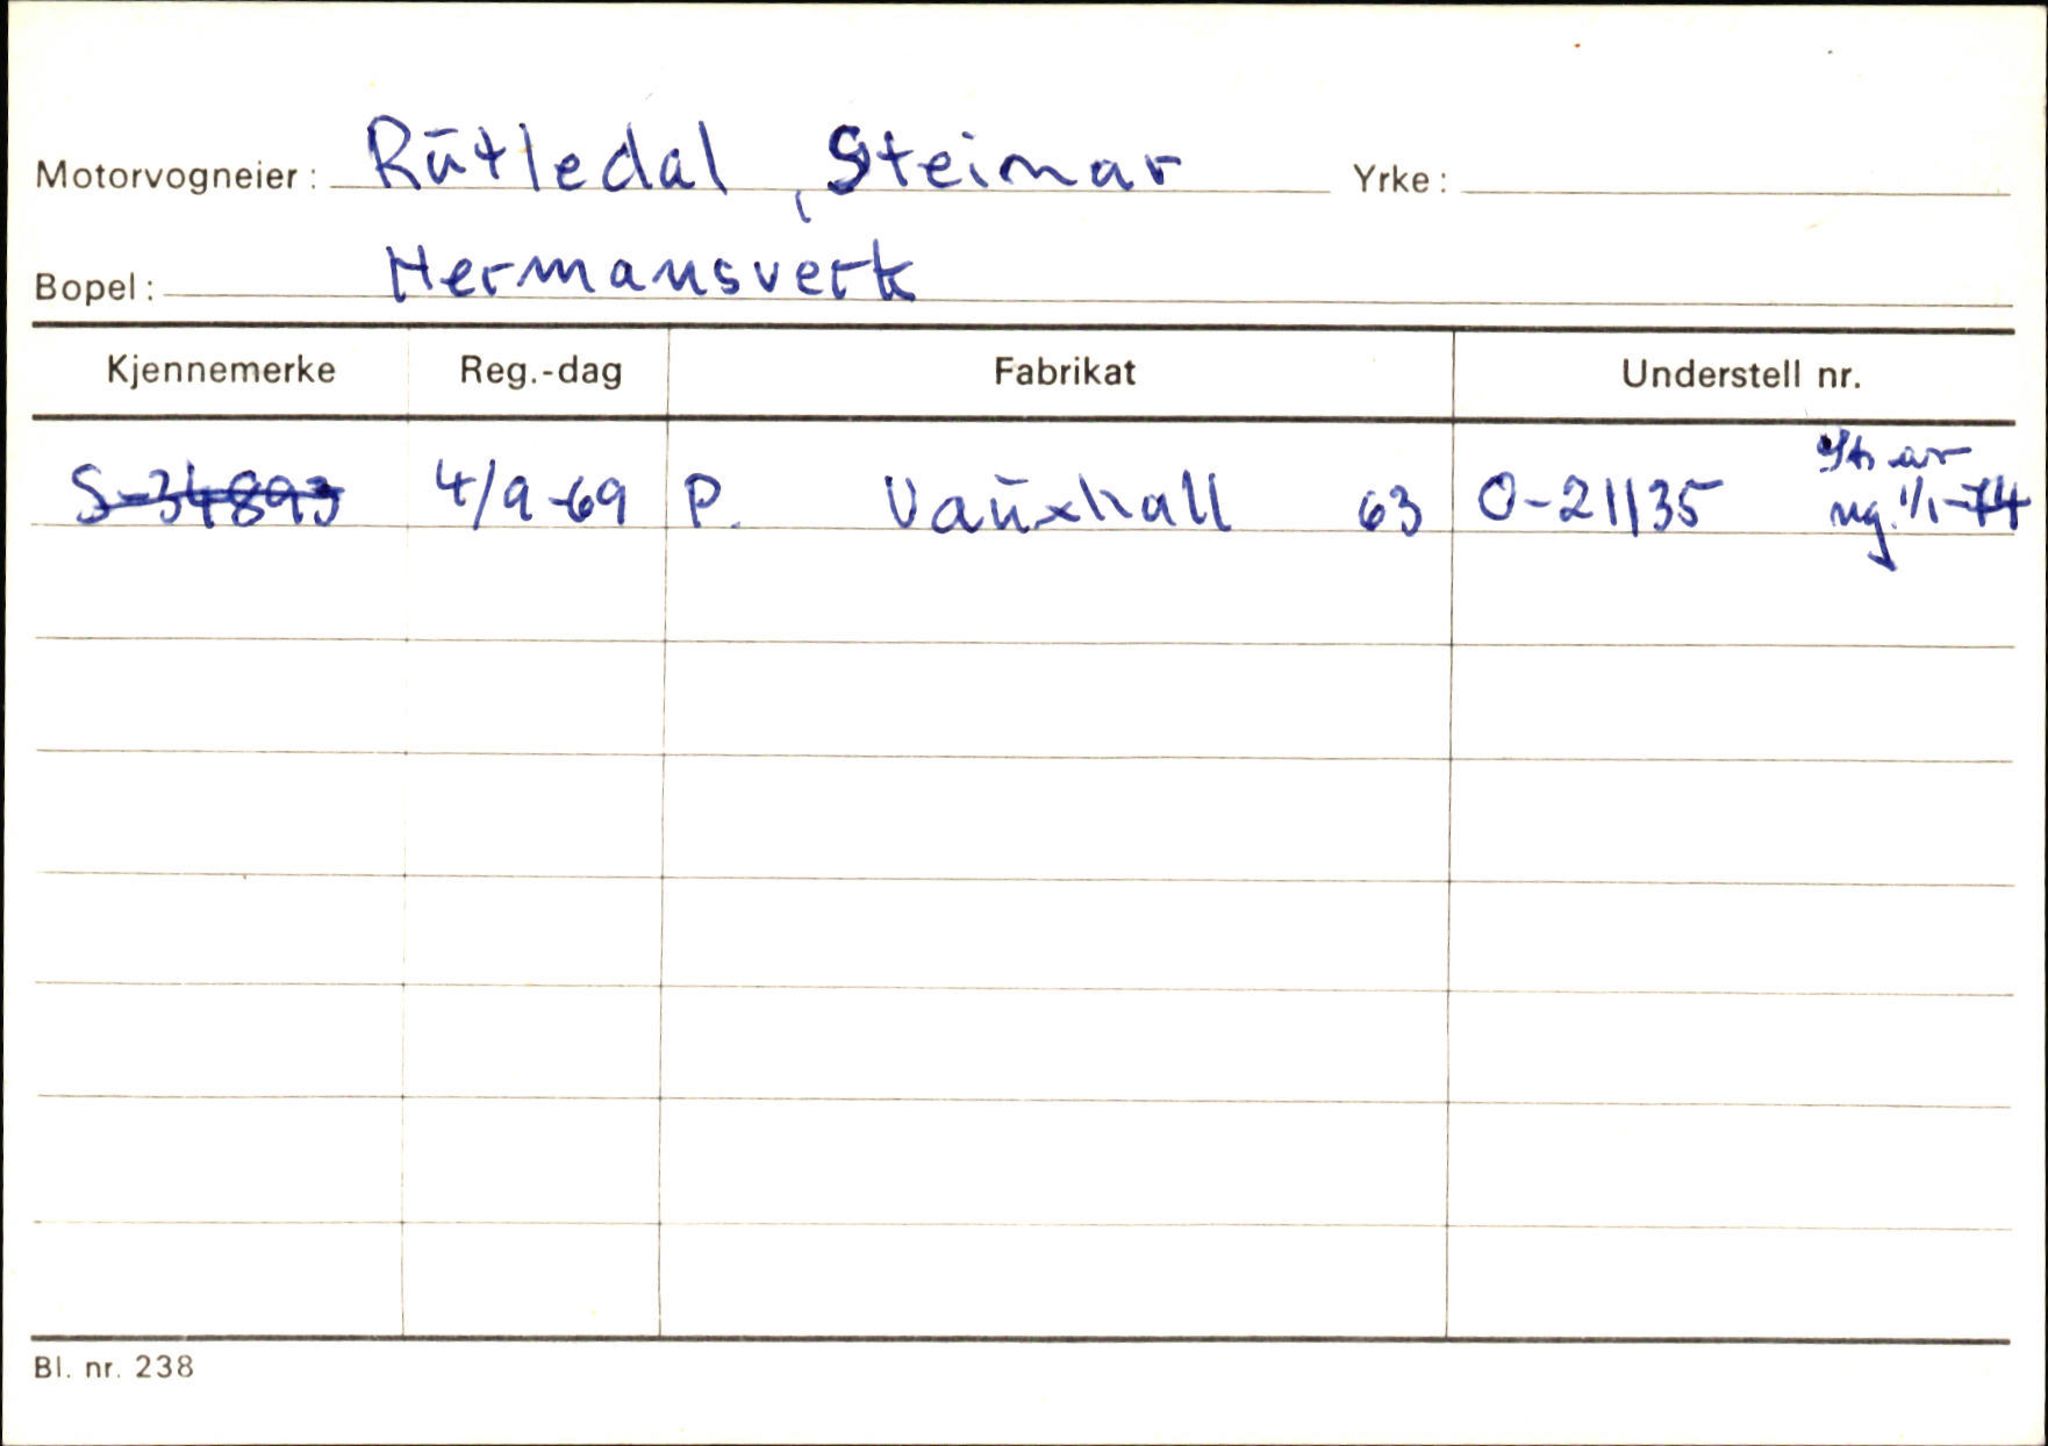 Motorvogneier: Rutledal, Steinar Yrke:
Bopel: Hermansverk
Kjennemerke Reg.-dag Fabrikat Understell nr.
S-34893 4/9-69 P. Vauxhall 63 O-21135 1/1-74
Bl. nr. 238